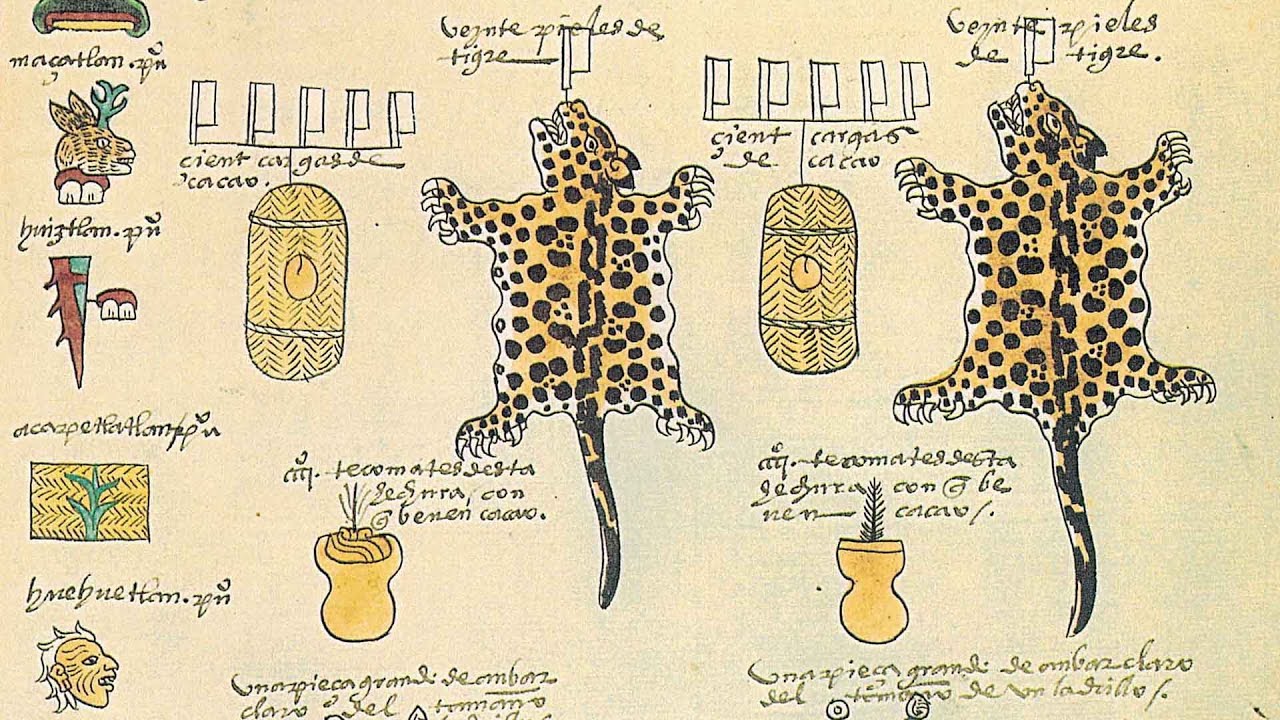 maçatlan. pũ
huiztlan. pũ
acapetlatlan/pũ
huehuetlan. pũ
çient cargas de
cacao.
veynte pieles de
tigre
çient cargas
de cacao
veynte pieles
de tigre.
tecomates desta
hechura, con
q̃ beuen cacao.
tecomates desta
hechura con q̃ be
uen cacao/.
vna pieça grande de ambar
claro del tamaño
vna pieça grande de ambar claro
del tamaño de vn ladrillo/.